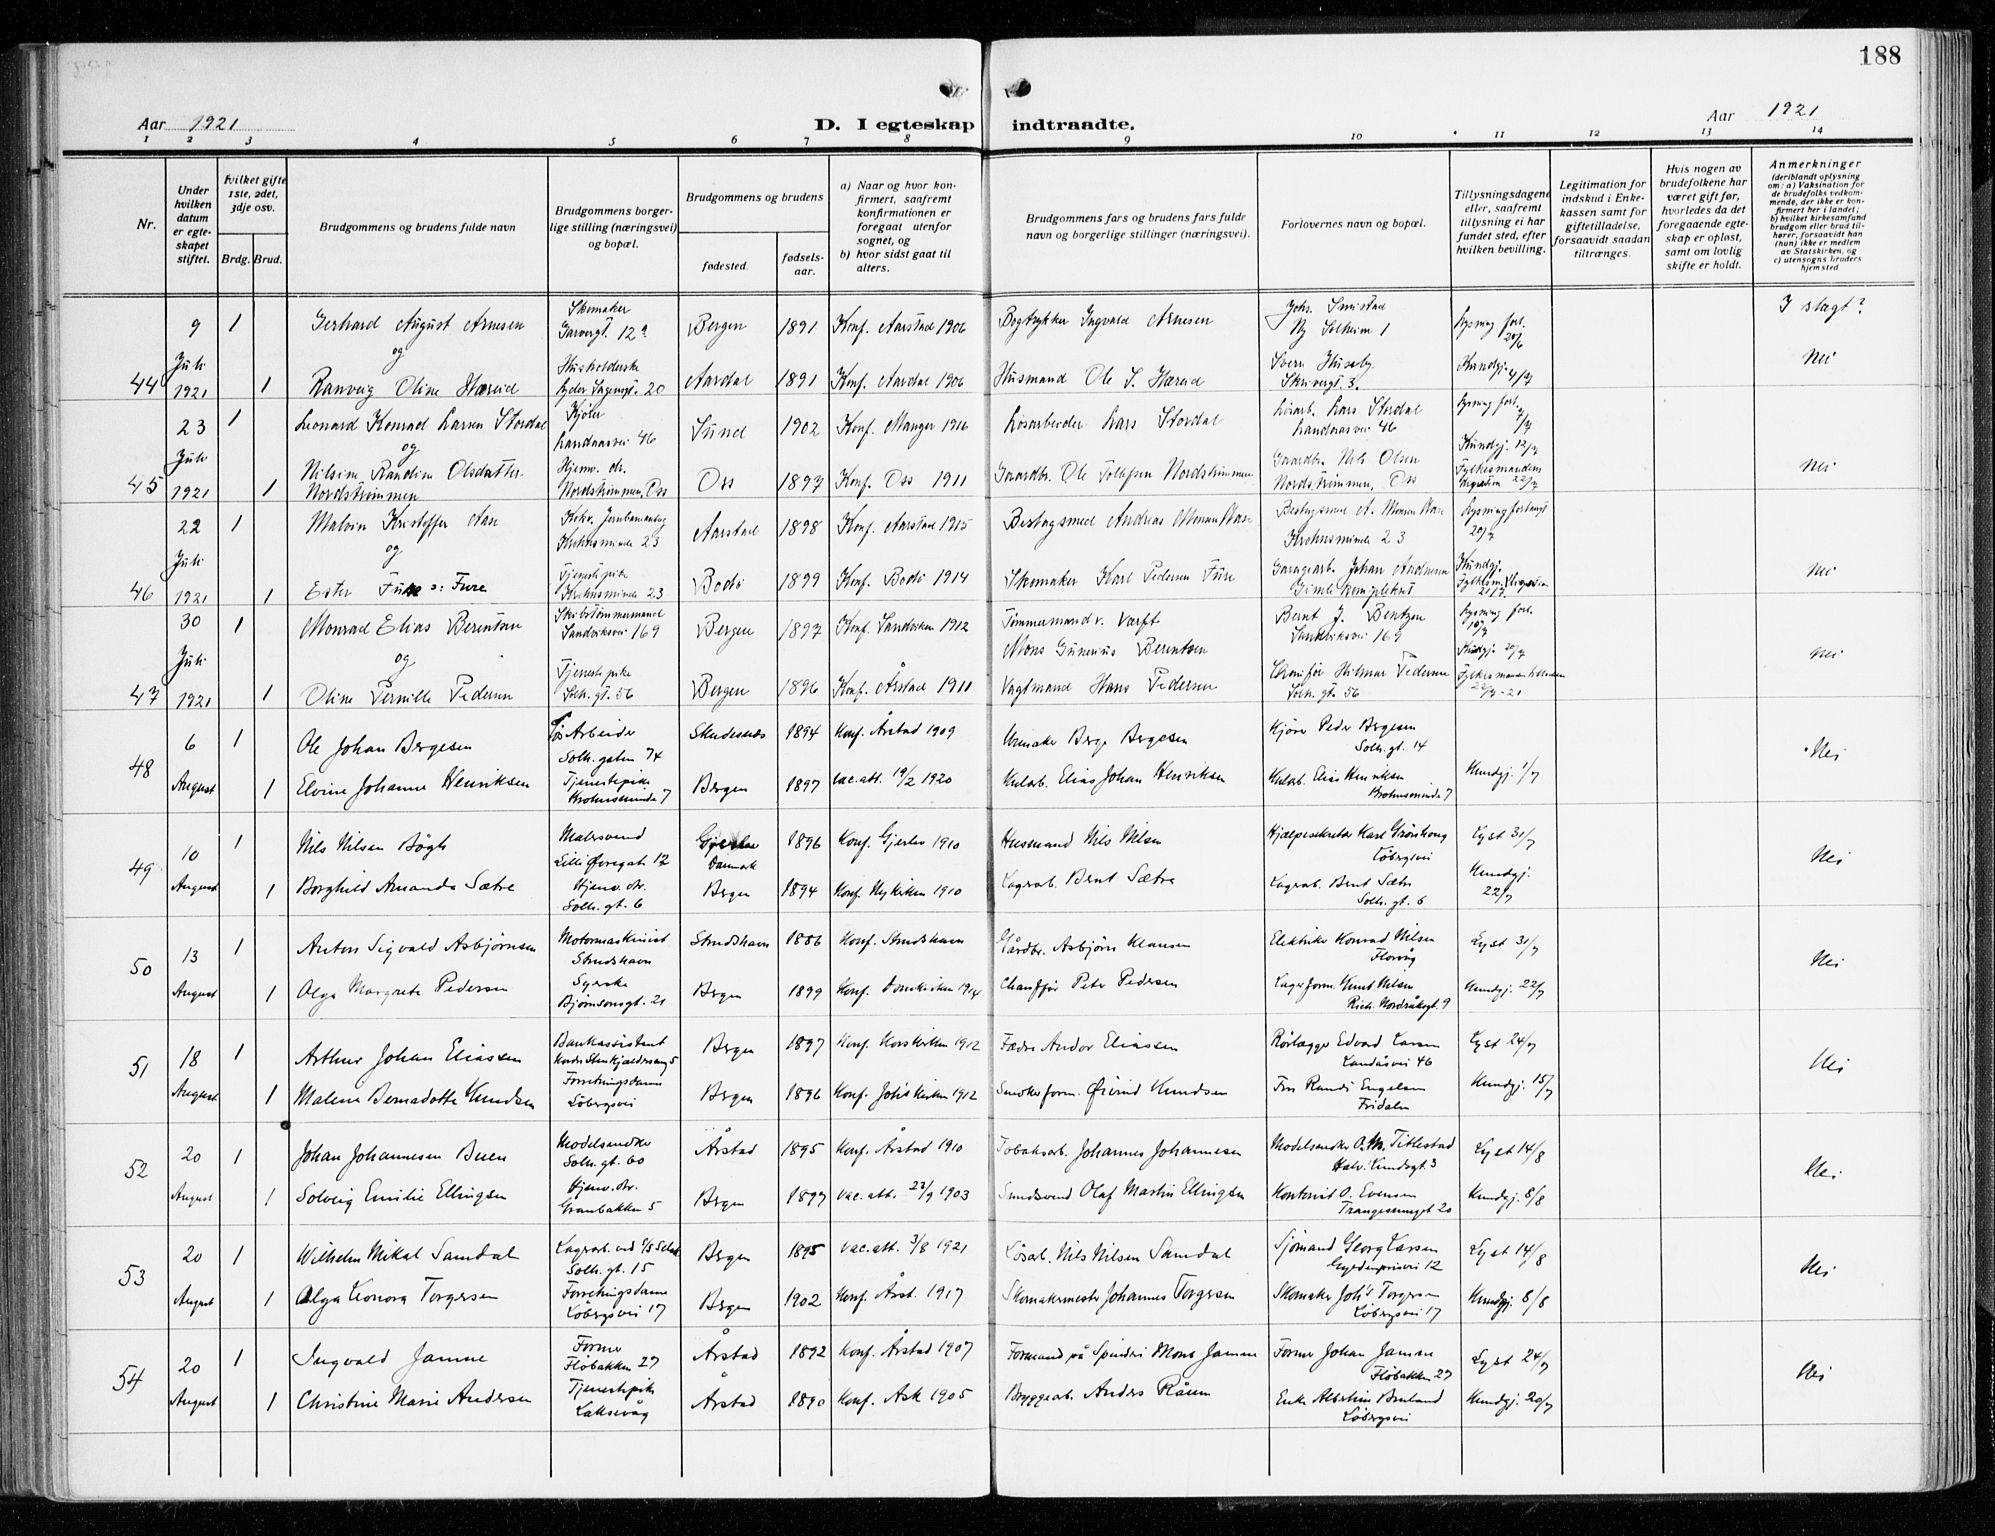 188
Aar 1921
D. I egteskap indtraadte.
Aar 1921
1 2 3 4 5 6 7 8 9 10 11 12 13 14
Nr.
Under hvilken datum er egteskapet stiftet.
Hvilket gifte 1ste, 2det, 3dje osv.
Brdg. Brud.
Brudgommens og brudens fulde navn
Brudgommens borgerlige stilling (næringsvei) og bopæl.
Brudgommens og brudens
fødested.
fødselsaar.
a) Naar og hvor konfirmert, saafremt konfirmationen er foregaat utenfor sognet, og
b) hvor sidst gaat til alters.
Brudgommens fars og brudens fars fulde navn og borgerlige stillinger (næringsvei).
Forlovernes navn og bopæl.
Tillysningsdagene eller, saafremt tillysning ei har fundet sted, efter hvilken bevilling.
Legitimation for indskud i Enkekassen samt for giftetilladelse, forsaavidt saadan tiltrænges.
Hvis nogen av brudefolkene har været gift før, hvorledes da det foregaaende egteskap er opløst, samt om lovlig skifte er holdt.
Anmerkninger (deriblandt oplysning om: a) Vaksination for de brudefolks vedkommende, der ikke er konfirmert her i landet; b) hvilket kirkesamfund brudgom eller brud tilhører, forsaavidt han (hun) ikke er medlem av Statskirken, og c) utensogns bruders hjemsted
I slegt?
44 9 Juli 1921 1 Gerhard August Arnesen Skomaker 12a Bergen 1891 Konf. Aarstad 1906 Bogtrykker Ingvald Arnesen Johs. Smistad Ny Solheim 1 Lysning fort. 20/6
og
1 Ranveig Oline Hærud Husholderske 20 Aardal 1891 Konf. Aardal 1906 Husmand Ole S. Hærud Sverre Huseby Skrivergt. 3. Kundgj. 4/7 Nei
45 23 Juli 1921 1 Leonard Konrad Larsen Stordal Kjøler Landaasvei 46 Sund 1902 Konf. Manger 1916 Løsarbeider Lars Stordal Løsarb. Lars Stordal Landaasvei 46 Lysning fort.
og
1 Nilsine Randine Olsdatter Nordstrimmen Hjemv. dr. Nordstrimmen, Oss Oss 1897 Konf. Oss 1911 Gaardbr. Ole Tollefsen Nordstrimmen Gaardbr. Nils Olsen Nordstrimmen, Oss Kundgj. 12/7 Fylkesmandens 22/7 Nei
46 22 Juli 1921 1 Malvin Kristoffer Aase Krohnsminde 23 Aarstad 1898 Konf. Aarstad 1915 Andreas Monsen Aase A. Monsen Aase Krohnsminde 23 Lysning forlangt 20/7
og
1 Ester Fure Tjenestepike Krohnsminde 23 Bodø 1899 Konf. Bodø 1914 Skomaker Karl Pedersen Fure Garagearb. Johan Andersen Kundgj. 21/7 Nei
47 30 Juli 1921 1 Monrad Elias Berentsen Skibstømmermand Sandviksvei 169 Bergen 1897 Konf. Sandviken 1912 Tømmermand v. Værft Mons Gunerius Berentsen Bernt J. Bentzen Sandviksvei 169 Lysning fort.
og
1 Oline Pernille Pedersen Tjenestepike Solh. gt. 56 Bergen 1896 Konf. Årstad 1911 Vagtmand Hans Pedersen Hilmar Pedersen Solh. gt. 56 22/7-21 Nei
48 6 August 1 Ole Johan Bergesen Løs Arbeider Solh. gaten 74 Skudesnes 1894 Konf. Årstad 1909 Urmaker Berge Bergesen Kjører Peder Bergesen Solh. gt. 14
1 Elvine Johanne Henriksen Tjenestepike Krohnsminde 7 Bergen 1897 vac. att. 19/2 1920 Kularb. Elias Johan Henriksen Kularb. Elias Henriksen Krohnsminde 7 Kundgj. 1/7 Nei
49 10 August 1 Nils Nilsen Bögh Malersvend Lille Øvregate 12 Gjerlev Danmark 1896 Konf. Gjerlev 1910 Husmand Nils Nilsen Hjælpesekretær Karl Løbergsvei Lyst 31/7
1 Borghild Amanda Sætre Hjemv. dr. Solh. gt. 6 Bergen 1894 Konf. Nykirken 1910 Lagerarb. Bernt Sætre Lagerarb. Bernt Sætre Solh. gt. 6 Kundgj. 22/7 Nei
50 13 August 1 Anton Sigvald Asbjørnsen Motormaskinist Strudshavn Strudshavn 1886 Konf. Strudshavn Gårdbr. Asbjørn Klausen Elektriker Konrad Nilsen Florvåg Lyst 31/7
1 Olga Margrete Pedersen Syerske Bjørnsonsgt. 21 Bergen 1899 Konf. Domkirken 1914 Chauffør Peter Pedersen Lagerform. Knut Nilsen Rich. Nordråksgt. 9 Kundgj. 22/7 Nei
51 18 August 1 Arthur Johan Eliassen Bankassistent Bergen 1897 Konf. Korskirken 1912 Andor Eliassen Rørlægger Edvard Larsen Landåsvei 46 Lyst 24/7
1 Malene Bernadotte Knudsen Forretningsdame Løbergsvei Bergen 1896 Konf. Joh's Kirken 1912 Øivind Knudsen Fru Randi Engelsen Fridalen Kundgj. 15/7 Nei
52 20 August 1 Johan Johannesen Buen Modelsnedker Solh. gt. 60 Årstad 1895 Konf. Årstad 1910 Tobaksarb. Johannes Johannesen Modelsnedker O. M. Titlestad Halv. Kundsgt 3 Lyst 14/8
1 Solveig Emilie Ellingsen Hjemv. dr. Granbakken 5 Bergen 1897 vac. att. 23/9 1903 Olaf Martin Ellingsen Kontorist O. Evensen 20 Kundgj. 8/8 Nei
53 20 August 1 Wilhelm Mikal Samdal Lagerarb. ved Solh. gt. 15 Bergen 1895 vac. att. 3/8 1921 Løsarb. Nils Nilsen Samdal Sjømand Georg Larsen 12 Lyst 14/8
1 Olga Leonora Torgersen Forretningsdame Løbergsvei 17 Bergen 1902 Konf. Årst. 1917 Skomakermester Johannes Torgersen Skomaker Joh's Torgersen Løbergsvei 17 Kundgj. 8/8 Nei
54 20 August 1 Ingvald Jamne Former Fløbakken 27 Årstad 1892 Konf. Årstad 1907 Formand på Spinderi Mons Jamne Former Johan Jamne Fløbakken 27 Lyst 24/7
1 Christine Marie Andersen Tjenestepike Laksevåg Årstad 1890 Konf. Ask 1905 Bryggearb. Anders Råen Enke Albertine Løbergsvei Kundgj. 20/7 Nei